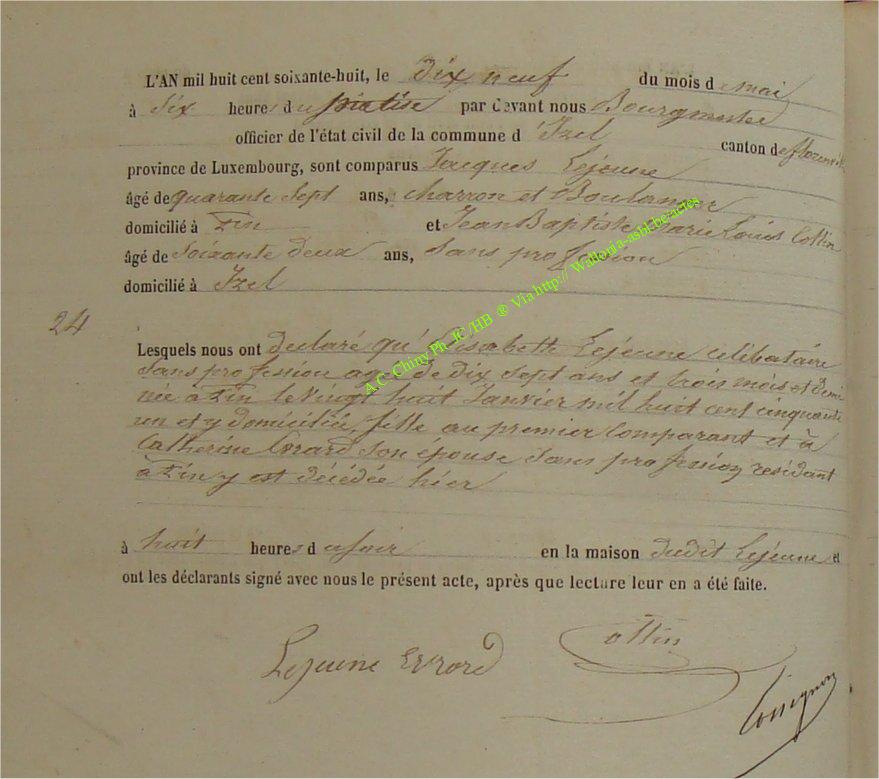 L'AN mil huit cent soixante-huit, le dix neuf du mois de mai
à six heures du matin par devant nous Bourgmestre
officier de l'état civil de la commune d'Izel canton de florenville
province de Luxembourg, sont comparus Jacques Lejeune
âgé de quarante sept ans, charron et Boulanger
domicilié à Pin et Jean Baptiste Marie Louis Collin
âgé de Soixante deux ans, Sans profession
domicilié à Izel
24
Lesquels nous ont declaré qu'Elisabette Lejeune célibataire
Sans profession agée de dix Sept ans et trois mois et demi
née à Pin le vingt huit Janvier mil huit cent cinquante
un et y domiciliée, fille au premier Comparant et à
Catherine Errard son épouse sans profession residant
à Pin y est décédée hier
à huit heures du soir en la maison dudit Lejeune et
ont les déclarants signé avec nous le présent acte, après que lecture leur en a été faite.
Lejeune Errard Collin
A.C. Chiny Ph. JC/HB ® Via http:// Wallonia-asbl.be/actes